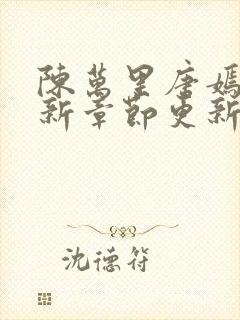 陳萬里唐嫣
新章節更新
沈德符